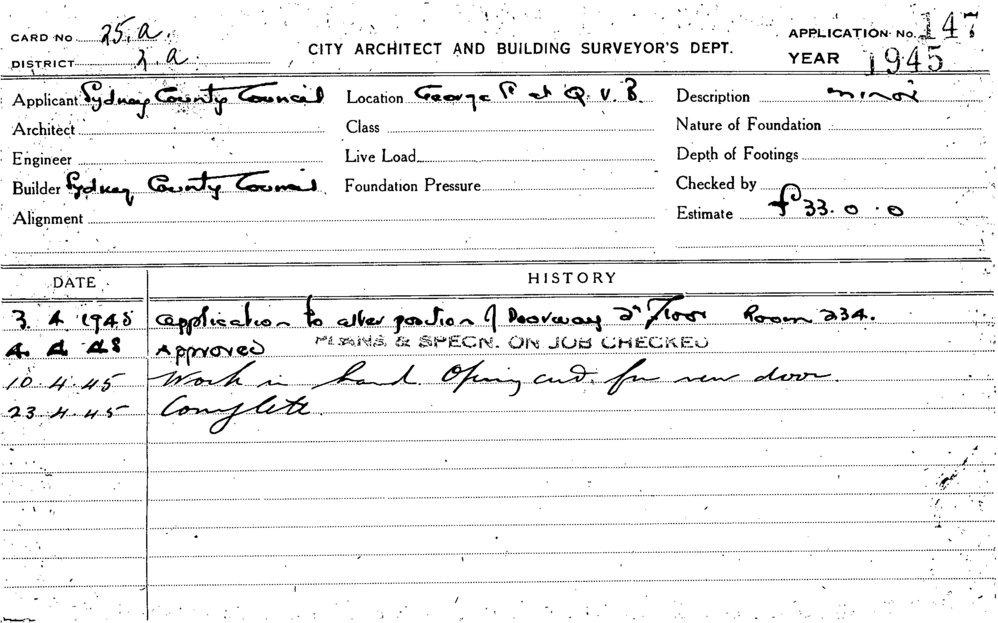 CARD No 25.a.
DISTRICT 2.a.
CITY ARCHITECT AND BUILDING SURVEYOR'S DEPT.
APPLICATION No. 147
YEAR 1945
Applicant Sydney County Council Location George St at Q.V.B. Description minor
Architect Class Nature of Foundation
Engineer Live Load Depth of Footings
Builder Sydney County Council Foundation Pressure Checked by
Alignment Estimate £33.0.0
DATE HISTORY
3 4 1945 Application to alter position of Doorway 2nd Floor Room 234.
4. 4. 45 Approved PLANS & SPECN. ON JOB CHECKED
10.4.45 Work in hand. Opening cut for new door.
23.4.45 Complete.